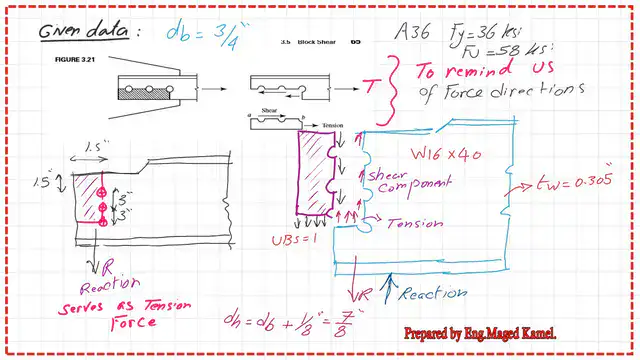 Given data:
db = 3/4"
A36 Fy=36 ksi
Fu=58 ksi
3.5 Block Shear
FIGURE 3.21
T
To remind us
of Force directions
Shear
a
b
Tension
1.5"
1.5"
3"
3"
R
Reaction
Serves as Tension
Force
UBS=1
W16x40
Shear
component
Tension
tw=0.305"
R
Reaction
dh = db + 1/8" = 7/8"
Prepared by Eng.Maged Kamel.